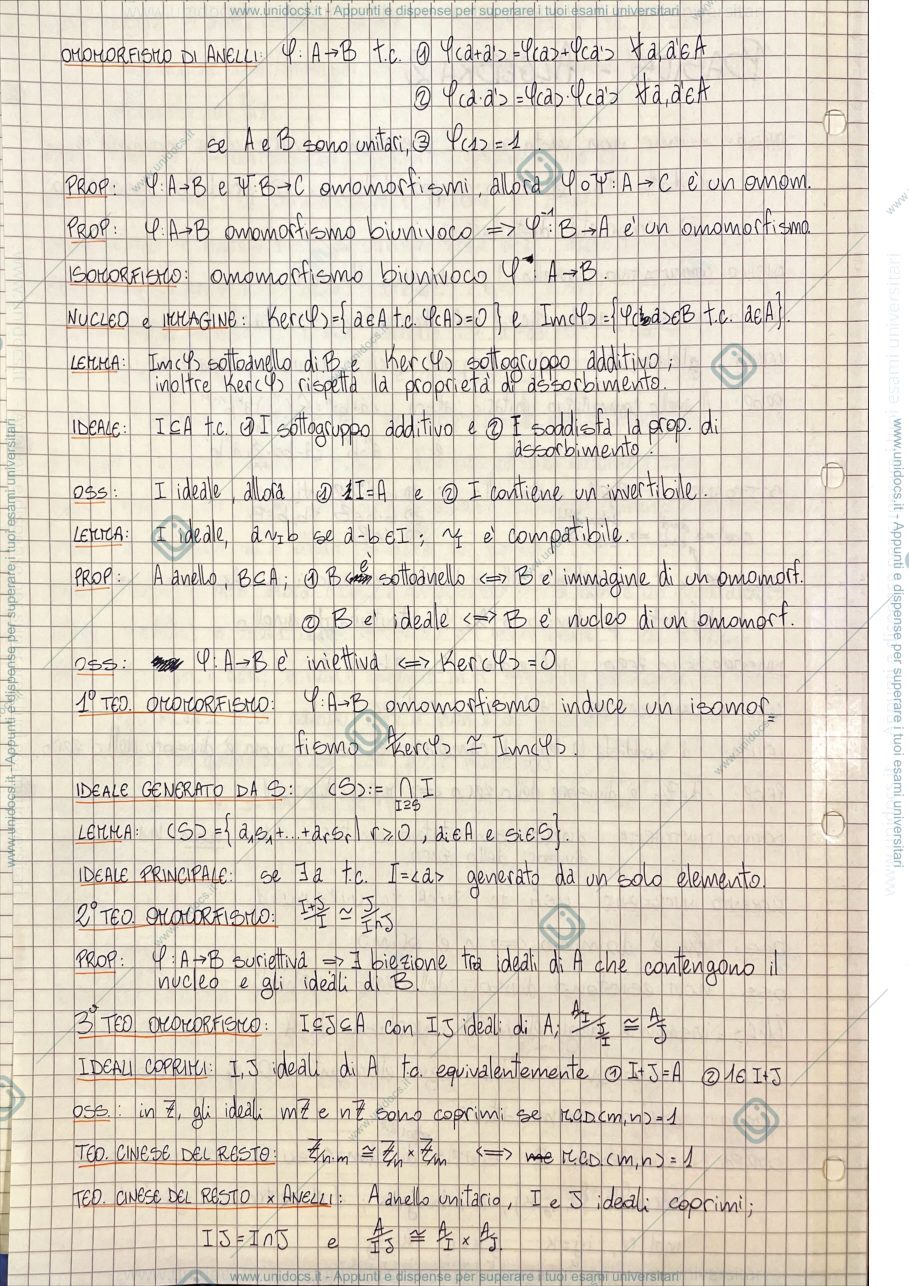 www.unidocs.it - Appunti e dispense per superare i tuoi esami universitari
OMOMORFISMO DI ANELLI: φ: A→B t.c. ① φ(a+a')=φ(a)+φ(a') ∀a,a'∈A
② φ(a·a')=φ(a)·φ(a') ∀a,a'∈A
se A e B sono unitari, ③ φ(1)=1.
PROP: φ:A→B e Ψ:B→C omomorfismi, allora φ∘Ψ:A→C è un omom.
PROP: φ:A→B omomorfismo biunivoco => φ⁻¹:B→A è un omomorfismo.
ISOMORFISMO: omomorfismo biunivoco φ: A→B.
NUCLEO e IMMAGINE: Ker(φ)={a∈A t.c. φ(A)=0} e Im(φ)={φ(a)∈B t.c. a∈A}.
LEMMA: Im(φ) sottoanello di B e Ker(φ) sottogruppo additivo;
inoltre Ker(φ) rispetta la proprietà di assorbimento.
IDEALE: I⊆A t.c. ① I sottogruppo additivo e ② I soddisfa la prop. di
assorbimento.
OSS: I ideale, allora ① I=A e ② I contiene un invertibile.
LEMMA: I ideale, a~ᵢb se a-b∈I; ~ᵢ è compatibile.
PROP: A anello, B⊆A; ① B è sottoanello <=> B è immagine di un omomorf.
② B è ideale <=> B è nucleo di un omomorf.
OSS: φ:A→B è iniettiva <=> Ker(φ)=0
1° TEO. OMOMORFISMO: φ:A→B omomorfismo induce un isomor=
fismo A/Ker(φ) ≃ Im(φ).
IDEALE GENERATO DA S: (S):= ⋂ I
I⊇S
LEMMA: (S)={a₁s₁+...+aᵣsᵣ | r≥0, aᵢ∈A e sᵢ∈S}.
IDEALE PRINCIPALE: se ∃a t.c. I=<a> generato da un solo elemento.
2° TEO. OMOMORFISMO: I+J/I ≃ J/I∩J
PROP: φ:A→B suriettiva => ∃ biezione tra ideali di A che contengono il
nucleo e gli ideali di B.
3° TEO OMOMORFISMO: I⊆J⊆A con I,J ideali di A; A/I / J/I ≅ A/J
IDEALI COPRIMI: I,J ideali di A t.c. equivalentemente ① I+J=A ② 1∈I+J
OSS.: in ℤ, gli ideali mℤ e nℤ sono coprimi se MCD(m,n)=1
TEO. CINESE DEL RESTO: ℤ/n·m ≅ ℤ/n × ℤ/m <=> MCD(m,n)=1
TEO. CINESE DEL RESTO × ANELLI: A anello unitario, I e J ideali coprimi;
IJ=I∩J e A/IJ ≅ A/I × A/J.
www.unidocs.it - Appunti e dispense per superare i tuoi esami universitari
www.unidocs.it - Appunti e dispense per superare i tuoi esami universitari
www.unidocs.it - Appunti e dispense per superare i tuoi esami universitari